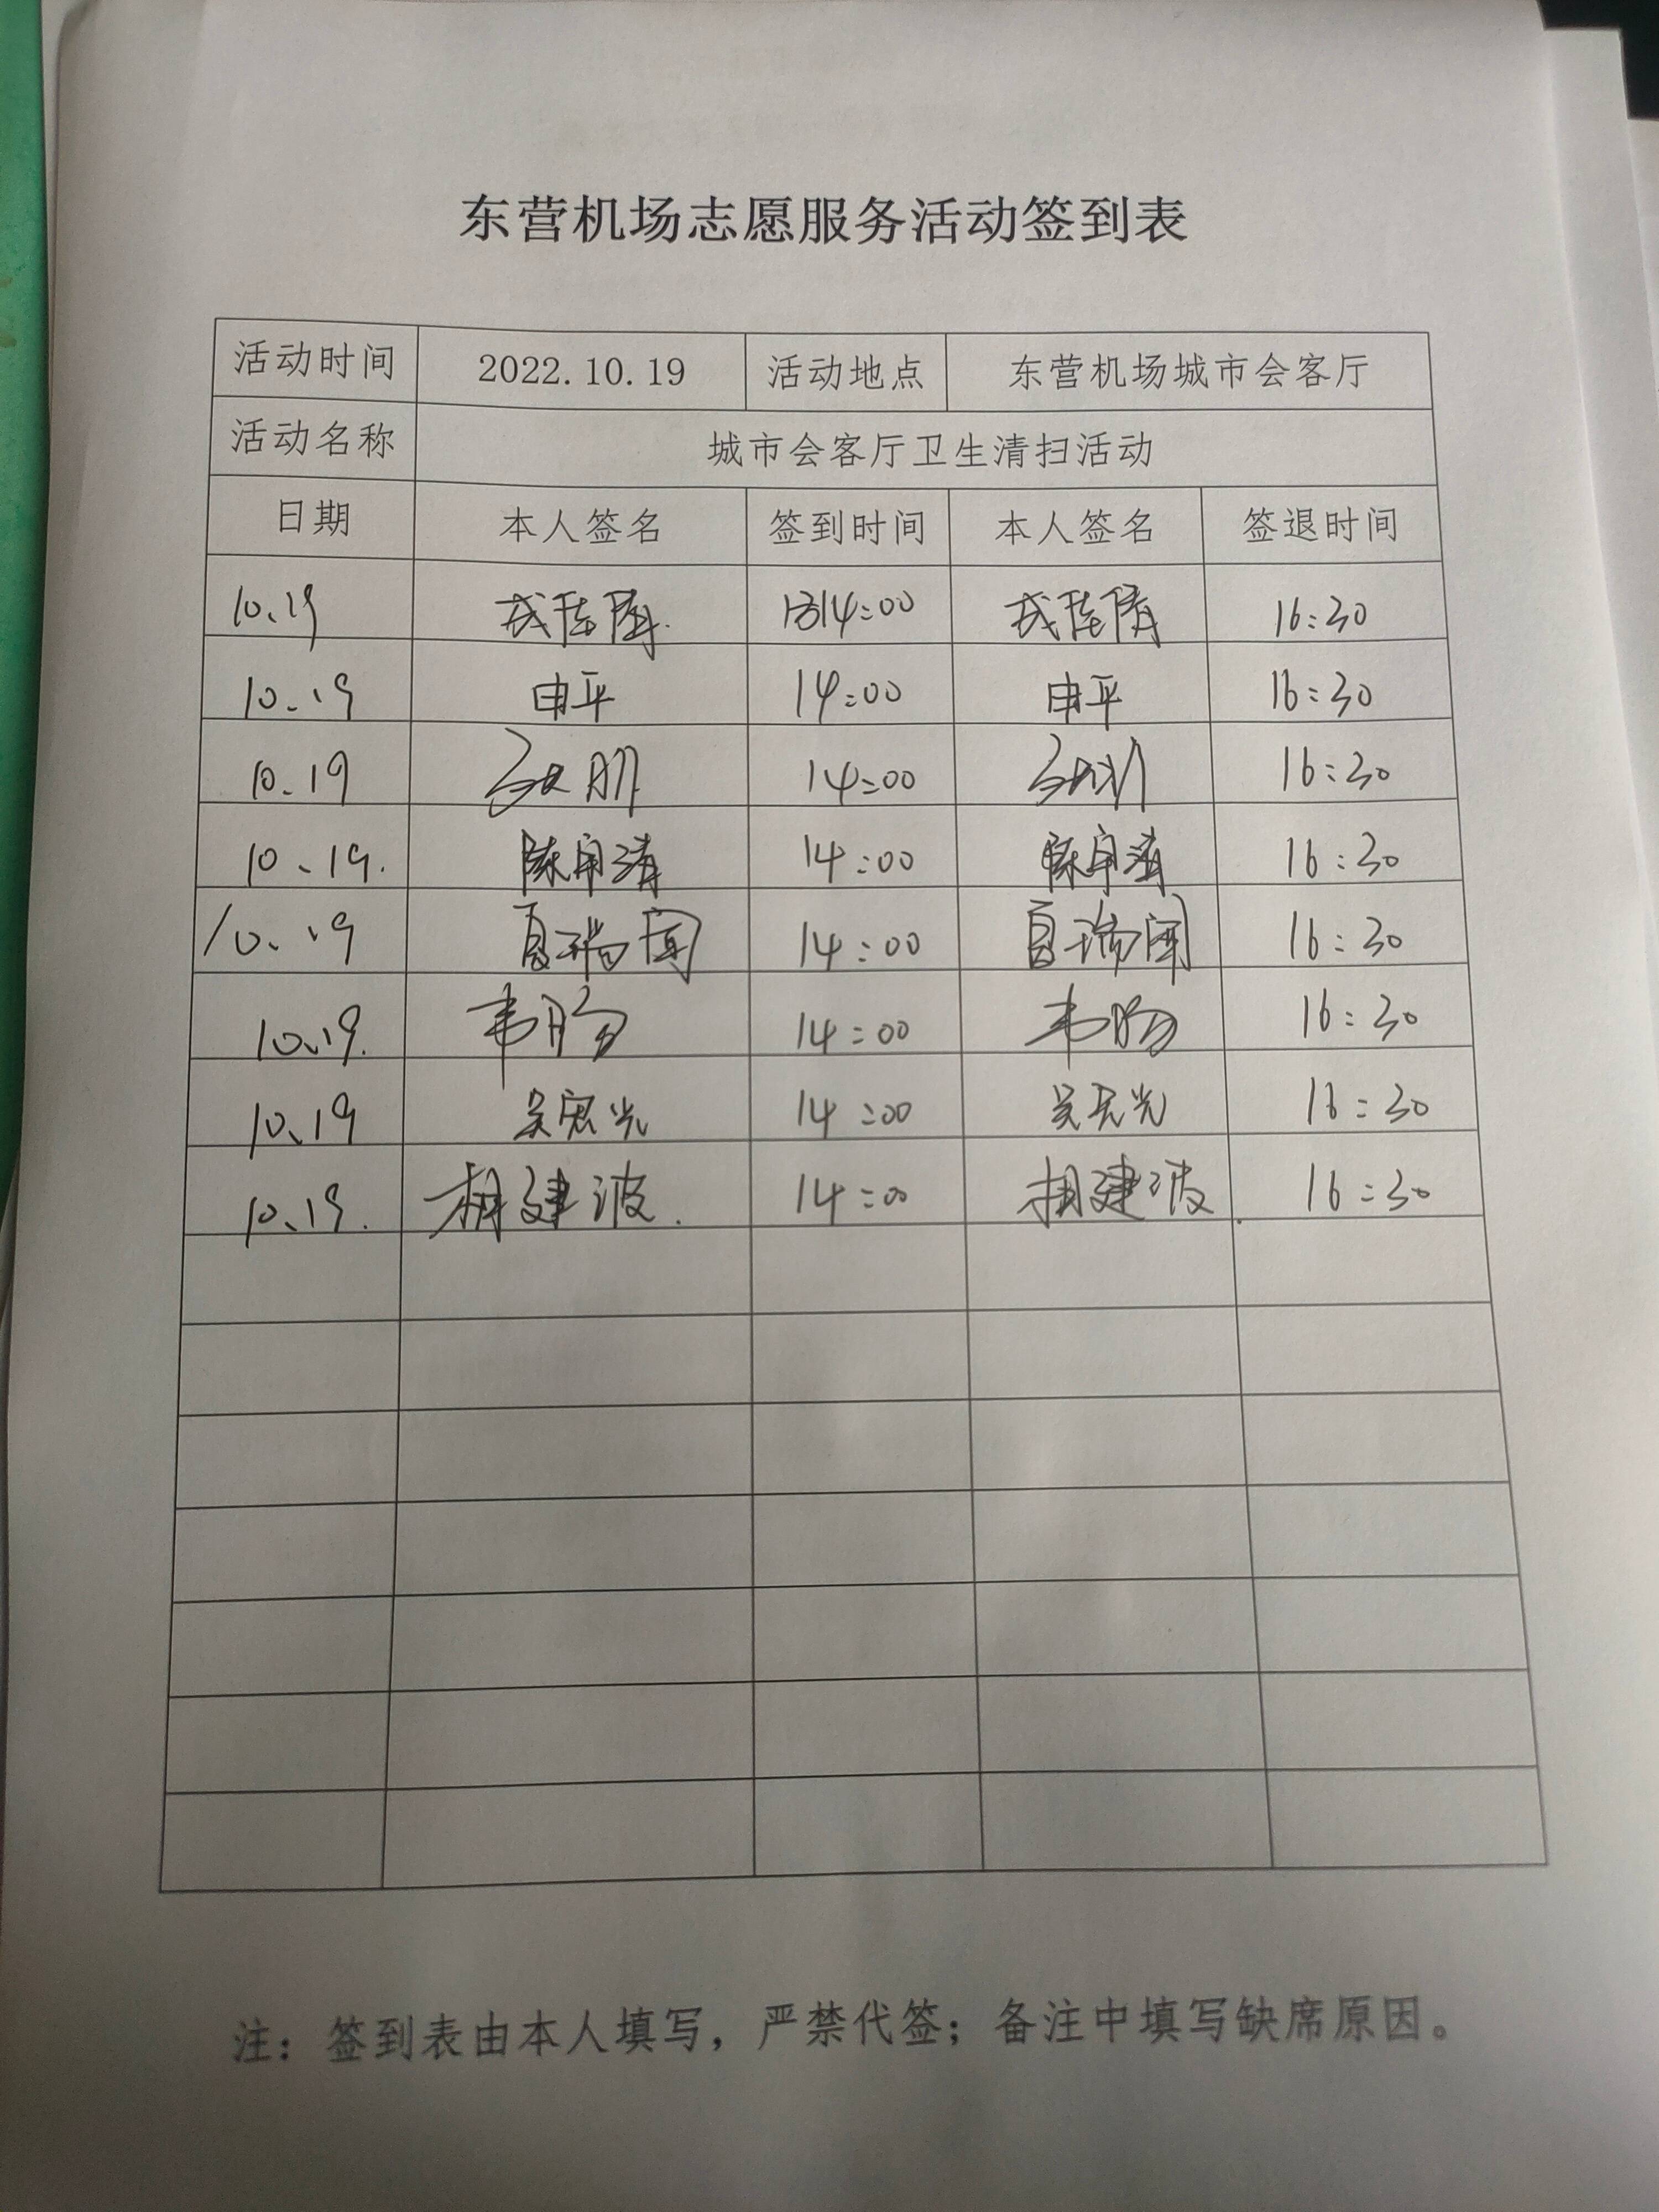 东营机场志愿服务活动签到表
活动时间 2022.10.19 活动地点 东营机场城市会客厅
活动名称 城市会客厅卫生清扫活动
日期 本人签名 签到时间 本人签名 签退时间
10.19 14:00 16:30
10.19 申平 14:00 申平 16:30
10.19 14:00 16:30
10.19. 陈宇清 14:00 陈宇清 16:30
10.19 夏瑞 14:00 夏瑞 16:30
10.19. 韦 14:00 韦 16:30
10.19 吴宏光 14:00 吴宏光 16:30
10.19. 相建波. 14:00 相建波. 16:30
注：签到表由本人填写，严禁代签；备注中填写缺席原因。